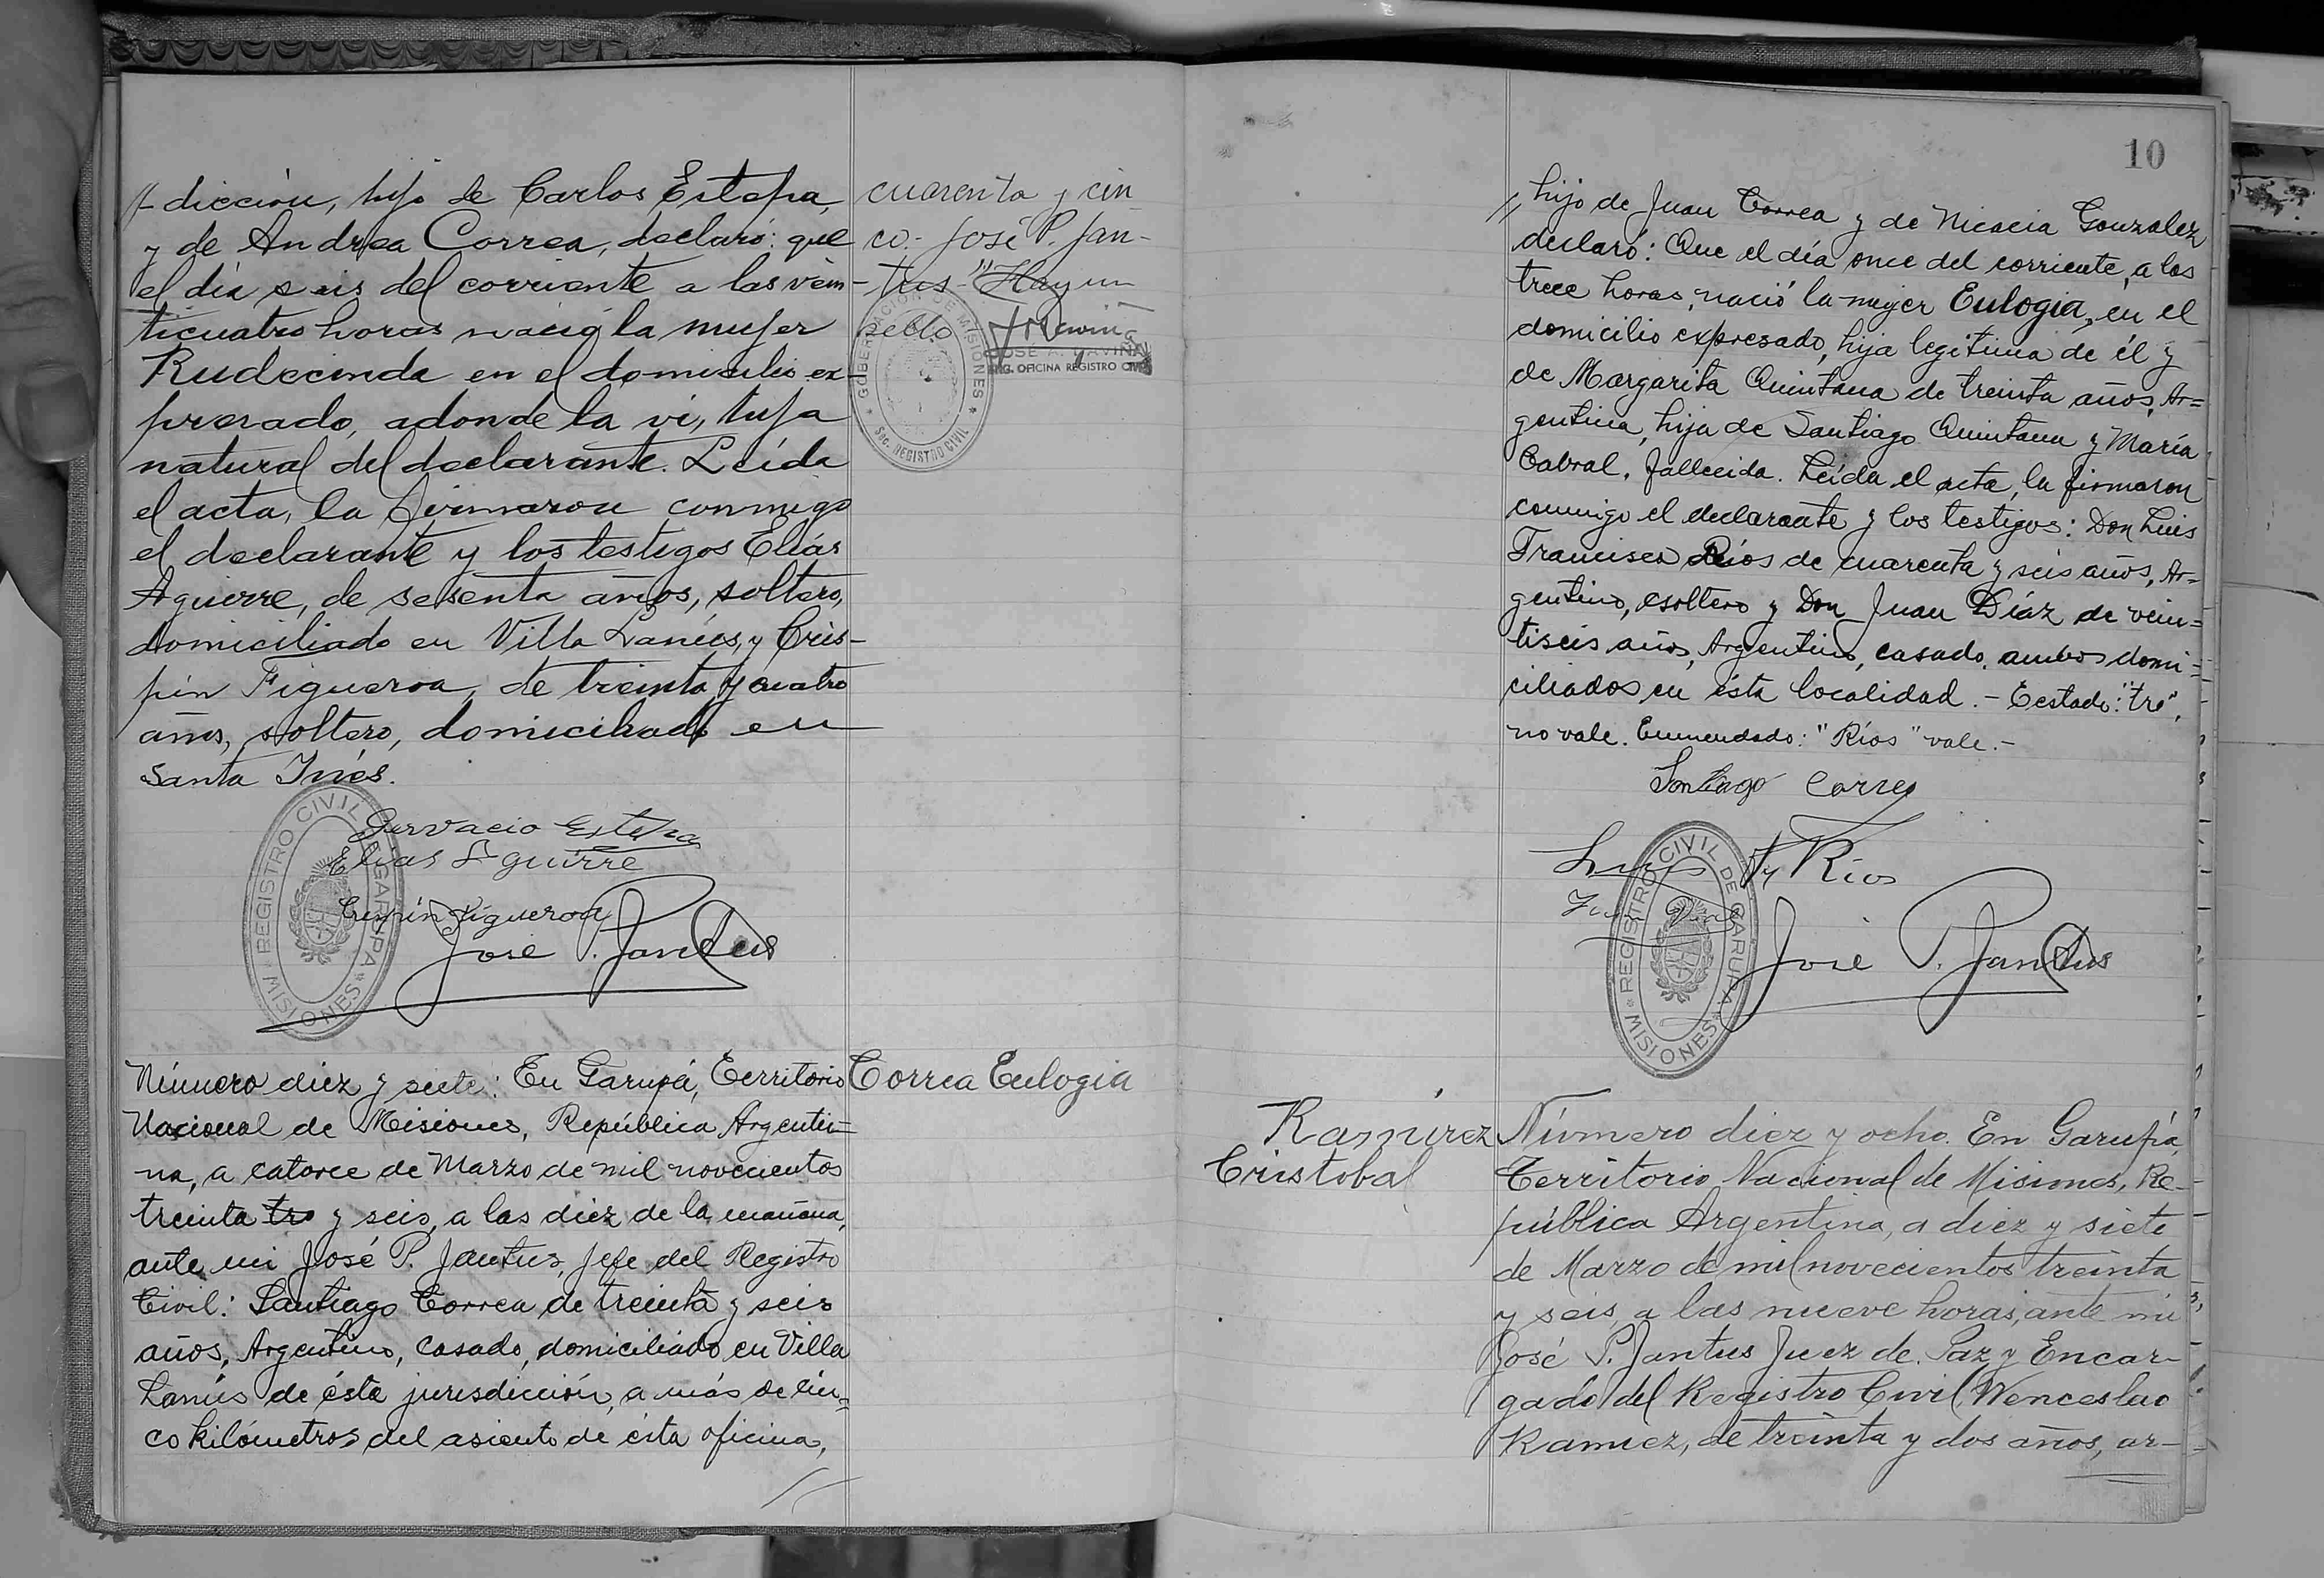 //-dicción, hijo de Carlos Estepa,
y de Andrea Correa, declaró: que
el día seis del corriente a las vein-
ticuatro horas nació la mujer
Rudecinda en el domicilio ex-
presado, adonde la vi, hija
natural del declarante. Leída
el acta, la firmaron conmigo
el declarante y los testigos Elías
Aguirre, de sesenta años, soltero,
domiciliado en Villa Lanús, y Cris-
pín Figueroa, de treinta y cuatro
años, soltero, domiciliado en
Santa Inés.
Gervacio Estepa
Elias Aguirre
Crispín Figueroa
José P. Jantus
REGISTRO CIVIL DE GARUPA * MISIONES *
cuarenta y cin
co.- José P. Jan-
tus-" Hay un
sello
GOBERNACION DE MISIONES * Sec. REGISTRO CIVIL *
JOSE A. DAVIÑA
ENC. OFICINA REGISTRO CIVIL
Número diez y siete: En Garupá, Territorio
Nacional de Misiones, República Argenti=
na, a catorce de Marzo de mil novecientos
treinta tre y seis, a las diez de la mañana,
ante mi José P. Jantus, Jefe del Registro
Civil: Santiago Correa de treinta y seis
años, Argentino, casado, domiciliado en Villa
Lanús de ésta jurisdicción, a más de cin=
co kilómetros del asiento de ésta oficina,
//
Correa Eulogia
10
// hijo de Juan Correa y de Nicacia Gonzalez
declaró: Que el día once del corriente, a las
trece horas, nació la mujer Eulogia, en el
domicilio expresado, hija legitima de él y
de Margarita Quintana de treinta años, Ar=
gentina, hija de Santiago Quintana y María
Cabral, fallecida. Leída el acta, la firmaron
conmigo el declarante y los testigos: Don Luis
Francisco Ríos de cuarenta y seis años, Ar=
gentino, soltero y Don Juan Díaz de vein=
tiseis años, Argentino, casado, ambos domi=
ciliados en ésta localidad.- Testado: "tre",
no vale. Enmendado: "Ríos" vale.-
Santiago Correa
Luis F Rios
Juan Diaz
José P. Jantus
REGISTRO CIVIL DE GARUPA * MISIONES *
Ramírez
Cristobal
Número diez y ocho. En Garupá,
Territorio Nacional de Misiones, Re-
pública Argentina, a diez y siete
de Marzo de mil novecientos treinta
y seis, a las nueve horas, ante mi
José P. Jantus Juez de Paz y Encar-
gado del Registro Civil, Wenceslao
Ramirez, de treinta y dos años, ar-